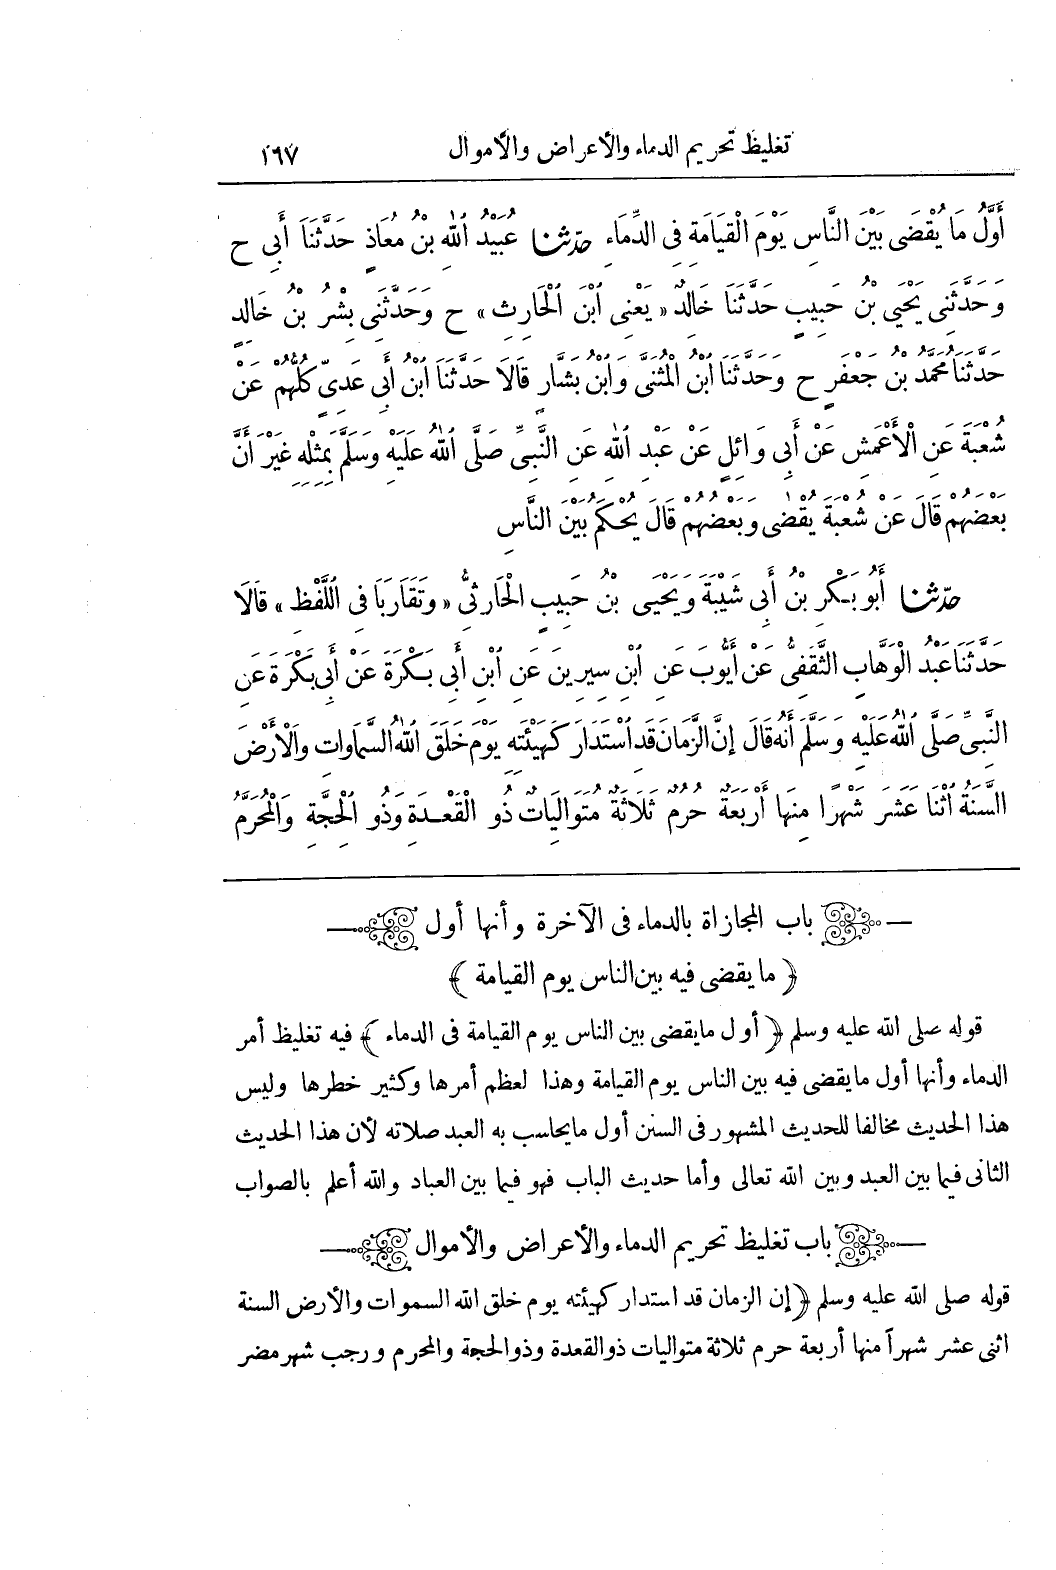 تغليظ تحريم الدماء والأعراض والأموال ١٦٧
أَوَّلُ مَا يُقْضَى بَيْنَ النَّاسِ يَوْمَ الْقِيَامَةِ فِى الدِّمَاءِ حدثنا عُبَيْدُ اللهِ بْنُ مُعَاذٍ حَدَّثَنَا أَبِى ح
وَحَدَّثَنِى يَحْيَى بْنُ حَبِيبٍ حَدَّثَنَا خَالِدٌ «يَعْنِى ابْنَ الْحَارِثِ» ح وَحَدَّثَنِى بِشْرُ بْنُ خَالِدٍ
حَدَّثَنَا مُحَمَّدُ بْنُ جَعْفَرٍ ح وَحَدَّثَنَا ابْنُ الْمُثَنَّى وَابْنُ بَشَّارٍ قَالَا حَدَّثَنَا ابْنُ أَبِى عَدِىٍّ كُلُّهُمْ عَنْ
شُعْبَةَ عَنِ الْأَعْمَشِ عَنْ أَبِى وَائِلٍ عَنْ عَبْدِ اللهِ عَنِ النَّبِىِّ صَلَّى اللهُ عَلَيْهِ وَسَلَّمَ بِمِثْلِهِ غَيْرَ أَنَّ
بَعْضَهُمْ قَالَ عَنْ شُعْبَةَ يُقْضَى وَبَعْضُهُمْ قَالَ يُحْكَمُ بَيْنَ النَّاسِ
حدثنا أَبُو بَكْرِ بْنُ أَبِى شَيْبَةَ وَيَحْيَى بْنُ حَبِيبٍ الْحَارِثِىُّ «وَتَقَارَبَا فِى اللَّفْظِ» قَالَا
حَدَّثَنَا عَبْدُ الْوَهَّابِ الثَّقَفِىُّ عَنْ أَيُّوبَ عَنِ ابْنِ سِيرِينَ عَنِ ابْنِ أَبِى بَكْرَةَ عَنْ أَبِى بَكْرَةَ عَنِ
النَّبِىِّ صَلَّى اللهُ عَلَيْهِ وَسَلَّمَ أَنَّهُ قَالَ إِنَّ الزَّمَانَ قَدِ اسْتَدَارَ كَهَيْئَتِهِ يَوْمَ خَلَقَ اللهُ السَّمَاوَاتِ وَالْأَرْضَ
السَّنَةُ اثْنَا عَشَرَ شَهْرًا مِنْهَا أَرْبَعَةٌ حُرُمٌ ثَلَاثَةٌ مُتَوَالِيَاتٌ ذُو الْقَعْدَةِ وَذُو الْحِجَّةِ وَالْمُحَرَّمُ
باب المجازاة بالدماء فى الآخرة وأنها أول
﴿ ما يقضى فيه بين الناس يوم القيامة ﴾
قوله صلى الله عليه وسلم ﴿أول مايقضى بين الناس يوم القيامة فى الدماء﴾ فيه تغليظ أمر
الدماء وأنها أول ما يقضى فيه بين الناس يوم القيامة وهذا لعظم أمرها وكثير خطرها وليس
هذا الحديث مخالفا للحديث المشهور فى السنن أول مايحاسب به العبد صلاته لأن هذا الحديث
الثانى فيما بين العبد وبين الله تعالى وأما حديث الباب فهو فيما بين العباد والله أعلم بالصواب
باب تغليظ تحريم الدماء والأعراض والأموال
قوله صلى الله عليه وسلم ﴿إن الزمان قد استدار كهيئته يوم خلق الله السموات والأرض السنة
اثنى عشر شهراً منها أربعة حرم ثلاثة متواليات ذو القعدة وذو الحجة والمحرم ورجب شهر مضر